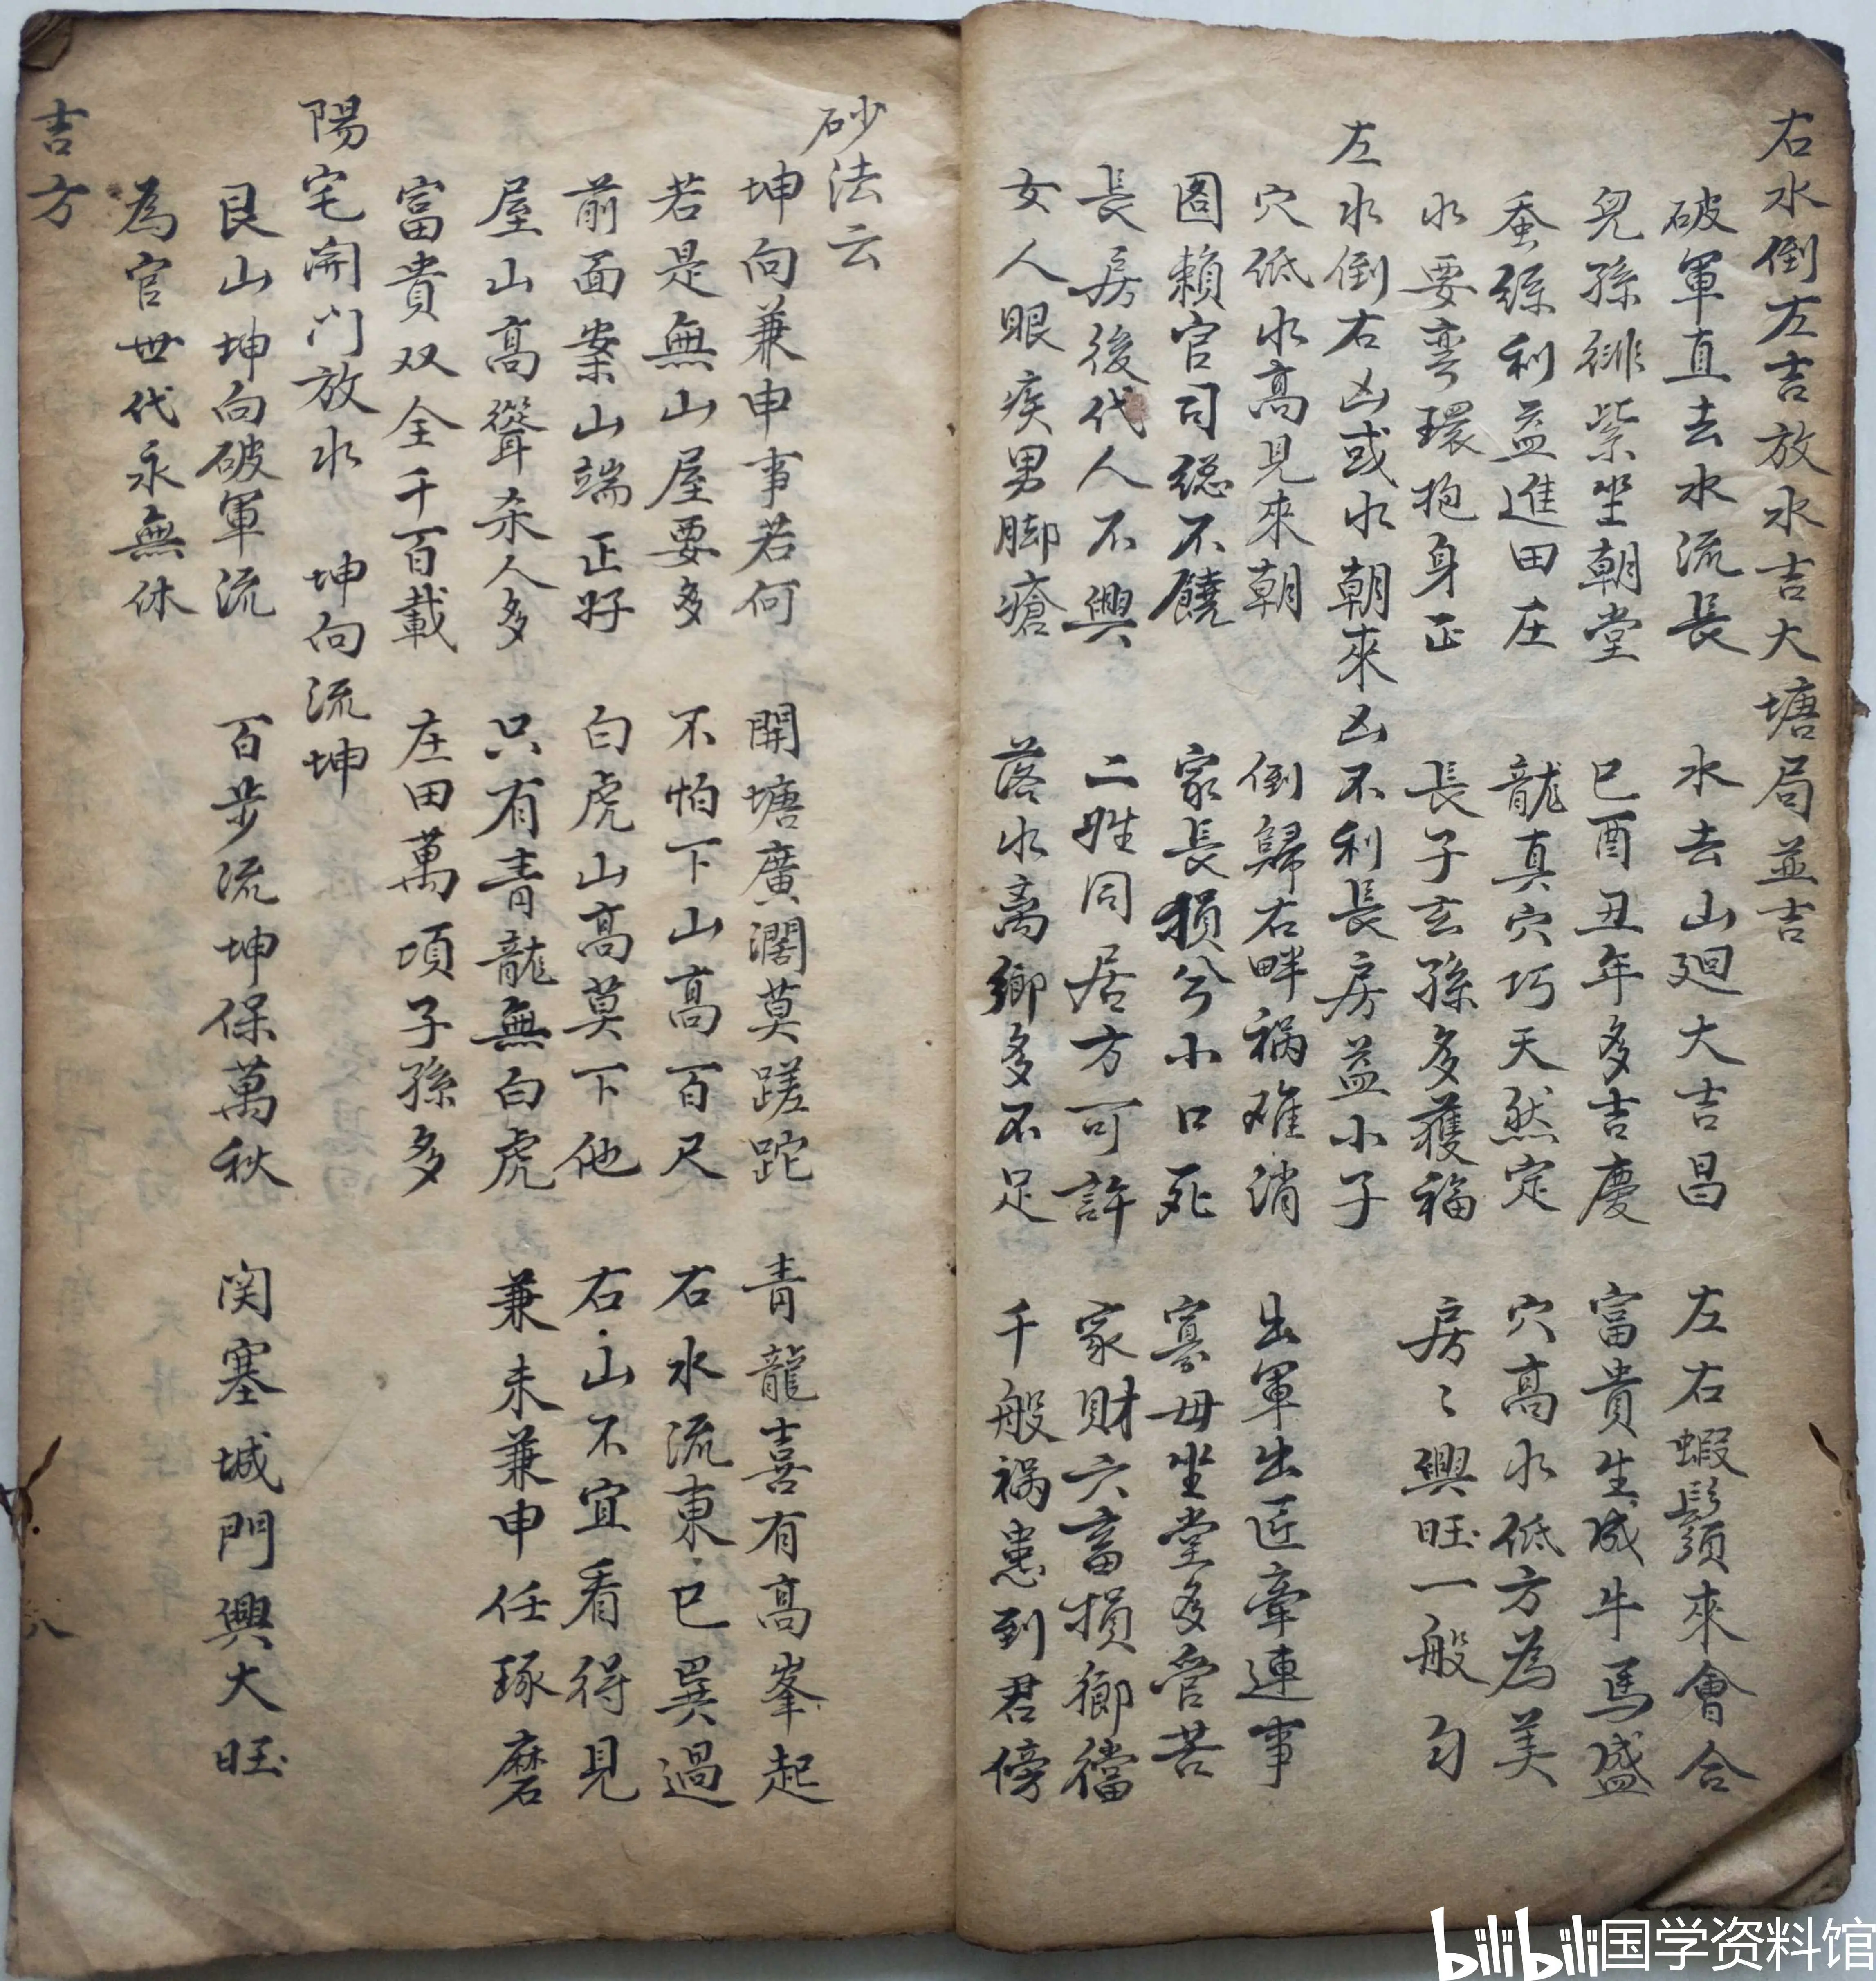 右水倒左吉放水吉大塘局並吉
破軍直去水流長 水去山廻大吉昌 左右蝦鬚來會合
兒孫緋紫坐朝堂 巳酉丑年多吉慶 富貴生成牛馬盛
蚕絲利益進田庄 龍真穴巧天然定 穴高水低方為美
水要弯環抱身正 長子玄孫多獲福 房〻興旺一般勻
左水倒右凶或水朝來凶不利長房益小子
穴低水高見來朝 倒歸右畔禍难消 出軍出匠牽連事
圖賴官司総不饒 家長損兮小口死 寡母坐堂多管苦
長房後代人不興 二姓同居方可許 家財六畜損鄉當
女人眼疾男脚瘡 落水离鄉多不足 千般禍患到君傍
砂法云
坤向兼申事若何 開塘廣濶莫蹉跎 青龍喜有高峯起
若是無山屋要多 不怕下山高百尺 右水流東巳巽過
前面案山端正好 白虎山高莫下他 右山不宜看得見
屋山高聳杀人多 只有青龍無白虎 兼未兼申任琢磨
富貴双全千百載 庄田萬項子孫多
陽宅開门放水 坤向流坤
艮山坤向破軍流 百步流坤保萬秋 関塞城門興大旺
為官世代永無休
吉方
八
bilibili国学资料馆